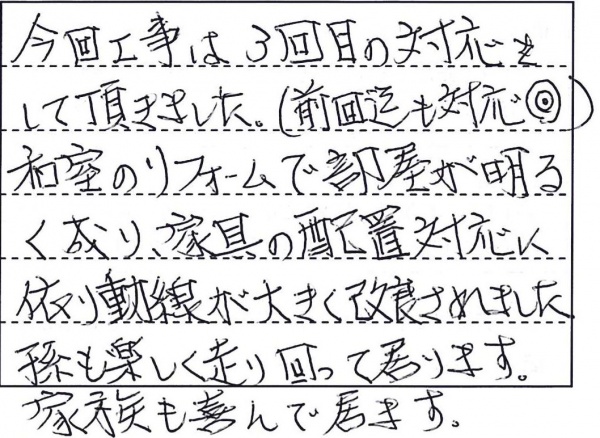 今回工事は3回目の対応を
して頂きました。(前回迄も対応◎)
和室のリフォームで部屋が明る
く成り、家具の配置対応に
依り動線が大きく改良されました
孫も楽しく走り回って居ります。
家族も喜んで居ます。